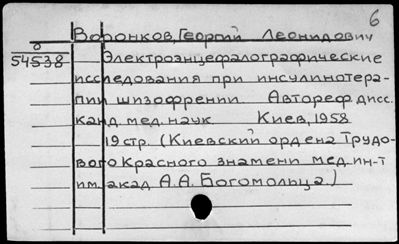 6
Воронков, Георгий Леонидович
54538
Электроэнцефалографические
исследования при инсулинотера-
пии шизофрении Автореф дисс.
канд. мед. наук Киев, 1958
19 стр. (Киевский ордена Трудо-
вого Красного знамени мед. ин-т
им. акад А.А. Богомольца.)